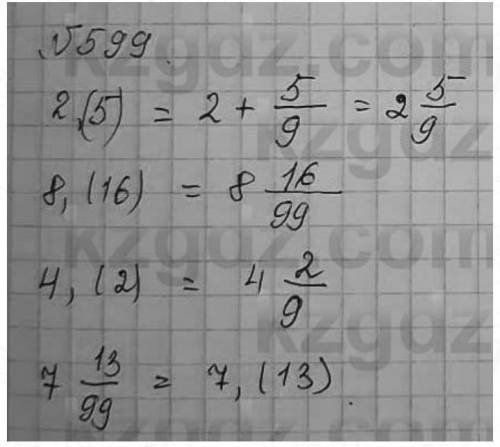 №599.
2,(5) = 2 + 5/9 = 2 5/9
8,(16) = 8 16/99
4,(2) = 4 2/9
7 13/99 = 7,(13).
kzgdz.com
kzgdz.com
kzgdz.com
kzgdz